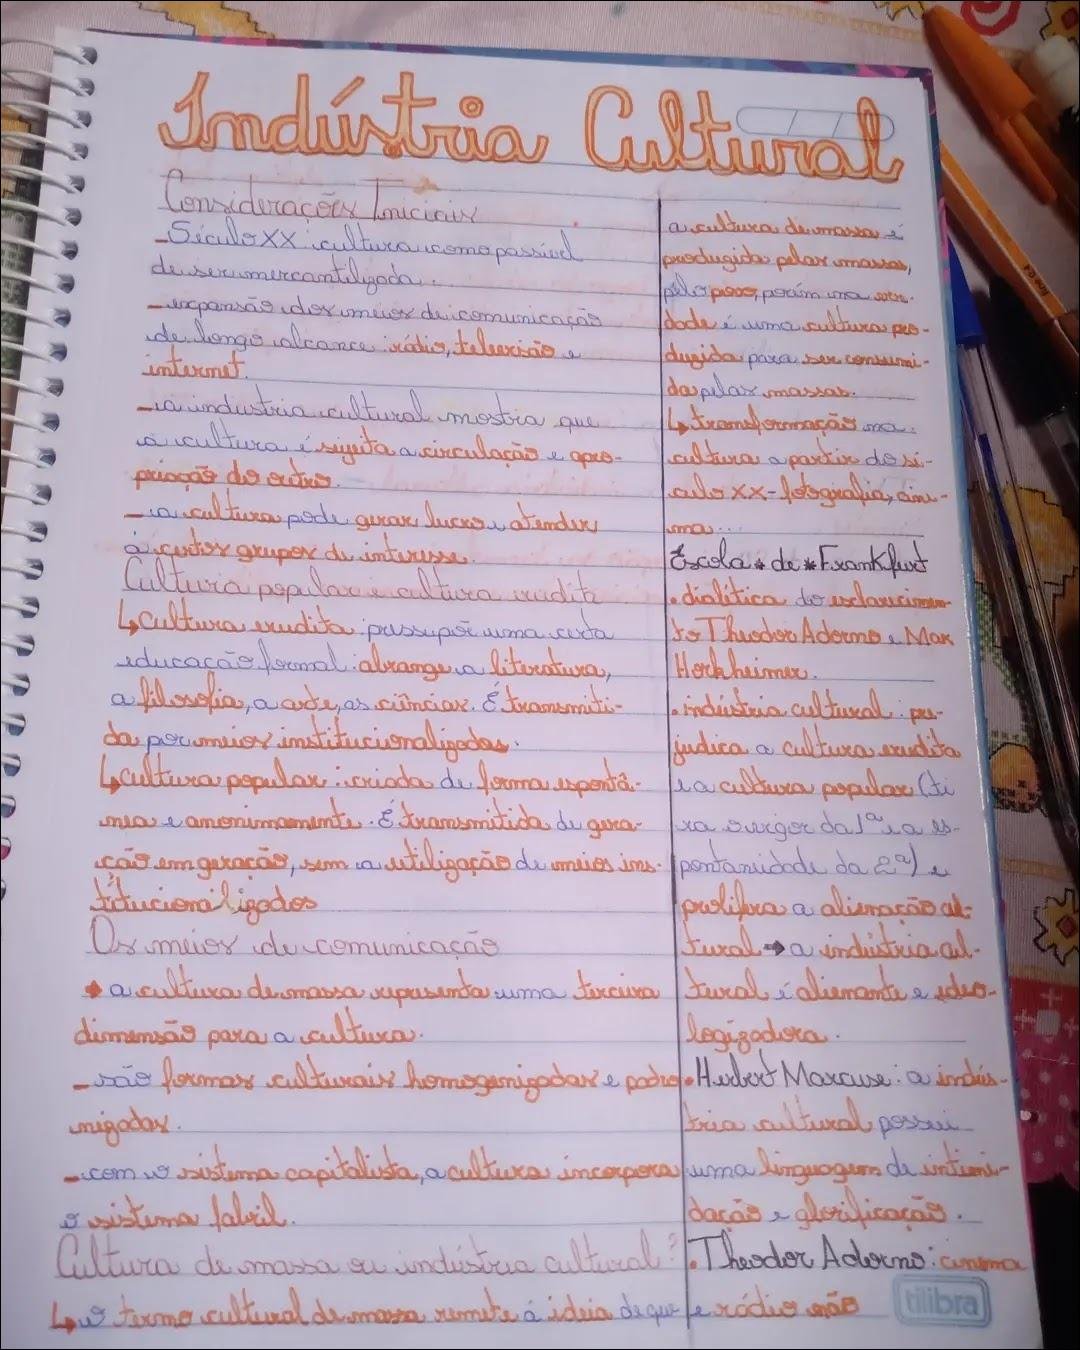 Indústria Cultural
Considerações Iniciais
- Século XX: cultura como passível
de ser mercantilizada.
- expansão dos meios de comunicação
de longo alcance: rádio, televisão e
internet.
- a industria cultural mostra que
a cultura é sujeita a circulação e apro-
priação do outro.
- a cultura pode gerar lucro e atender
à certos grupos de interesse.
Cultura popular e cultura erudita
↳ Cultura erudita: pressupõe uma certa
educação formal: abrange a literatura,
a filosofia, a arte, as ciências. É transmiti-
da por meios institucionalizados.
↳ cultura popular: criada de forma espontâ-
nea e anonimamente. É transmitida de gera-
ção em geração, sem a utilização de meios ins-
titucionalizados
Os meios de comunicação
➧ a cultura de massa representa uma terceira
dimensão para a cultura.
- são formas culturais homogenizadas e padro-
nizadas.
- com o sistema capitalista, a cultura incorpora
o sistema fabril.
Cultura de massa ou indústria cultural?
↳ o termo cultural de massa remete à ideia de que
a cultura de massa é
produzida pelas massas,
pelo povo, porém na ver-
dade é uma cultura pro-
duzida para ser consumi-
da pelas massas.
↳ transformação na
cultura a partir do sé-
culo XX - fotografia, cine-
ma...
Escola * de * Frankfurt
• dialética do esclarecimen-
to Theodor Adorno e Max
Horkheimer.
• indústria cultural: pre-
judica a cultura erudita
e a cultura popular (ti
ra o vigor da 1ª e a es-
pontaniedade da 2ª) e
prolifera a alienação cul-
tural → a indústria cul-
tural é alienante e ideo-
logizadora.
• Herbert Marcuse: a indús-
tria cultural possui
uma linguagem de intimi-
dação e glorificação.
• Theodor Adorno: cinema
e rádio não
tilibra